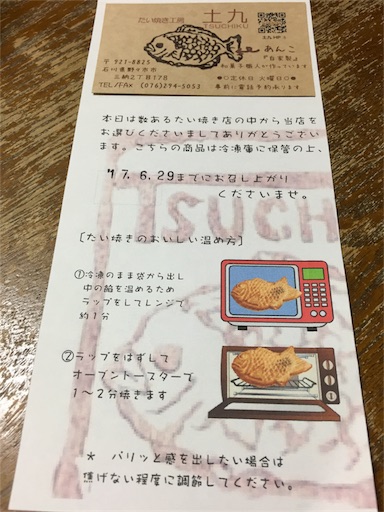 たい焼き工房 土九
TSUCHIKU
あんこ
『自家製』
和菓子職人が作っています
〒921-8825
石川県野々市市
三納2丁目178
●○定休日 火曜日○●
TEL/FAX (076)294-5053
事前に電話予約承ります
本日は数あるたい焼き店の中から当店を
お選びくださいましてありがとうござい
ます。こちらの商品は冷凍庫に保管の上、
17.6.29までにお召し上がり
くださいませ。
[たい焼きのおいしい温め方]
①冷凍のまま袋から出し
中の餡を温めるため
ラップをしてレンジで
約1分
②ラップをはずして
オーブントースターで
1〜2分焼きます
* パリッと感を出したい場合は
焦げない程度に調節してください。
TSUCH